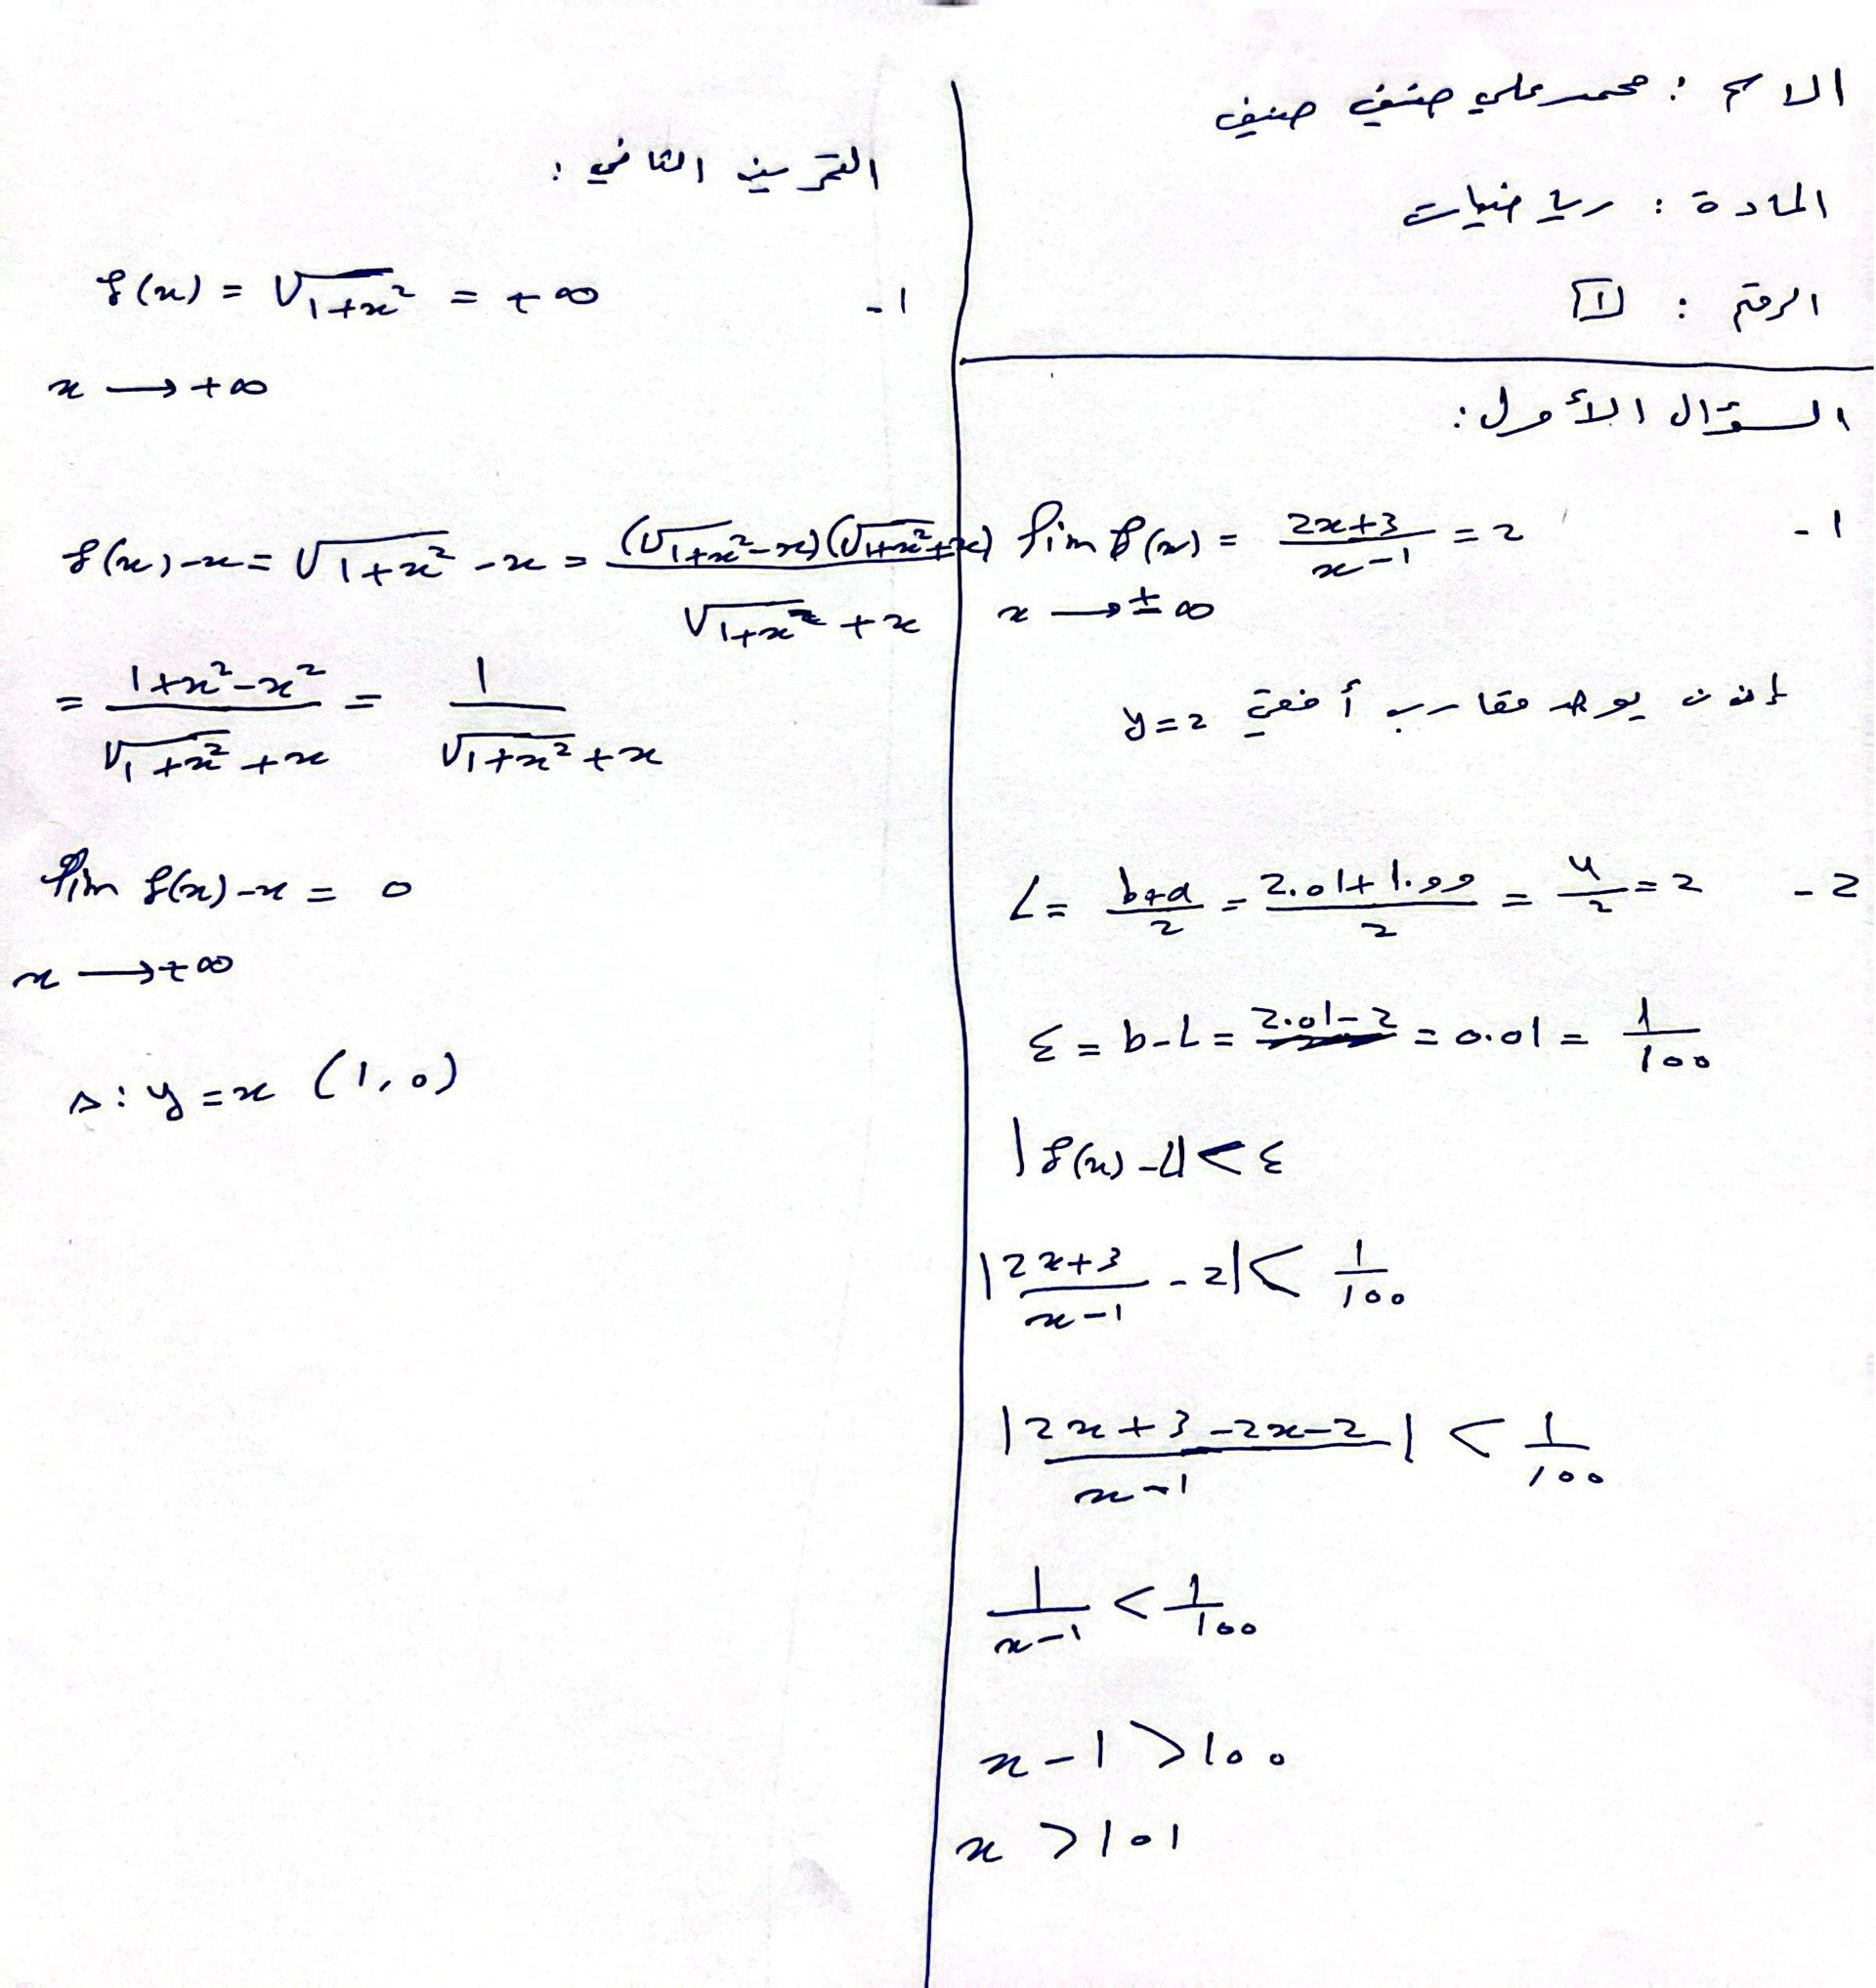 الاسم : محمد علي صنيف صنيف
المادة : رياضيات
الرقم : 1
السؤال الأول:
1- lim f(x) = (2x+3)/(x-1) = 2
x → ±∞
إذن يوجد مقارب أفقي y=2
2- L = (b+a)/2 = (2.01+1.99)/2 = 4/2 = 2
ε = b-L = 2.01-2 = 0.01 = 1/100
|f(x)-L| < ε
|(2x+3)/(x-1) - 2| < 1/100
|(2x+3-2x-2)/(x-1)| < 1/100
1/(x-1) < 1/100
x-1 > 100
x > 101
التمرين الثاني :
1- f(x) = √(1+x²) = +∞
x → +∞
f(x)-x = √(1+x²) -x = (√(1+x²)-x)(√(1+x²)+x)/(√(1+x²)+x)
= (1+x²-x²)/(√(1+x²)+x) = 1/(√(1+x²)+x)
lim f(x)-x = 0
x → +∞
Δ: y=x (1,0)